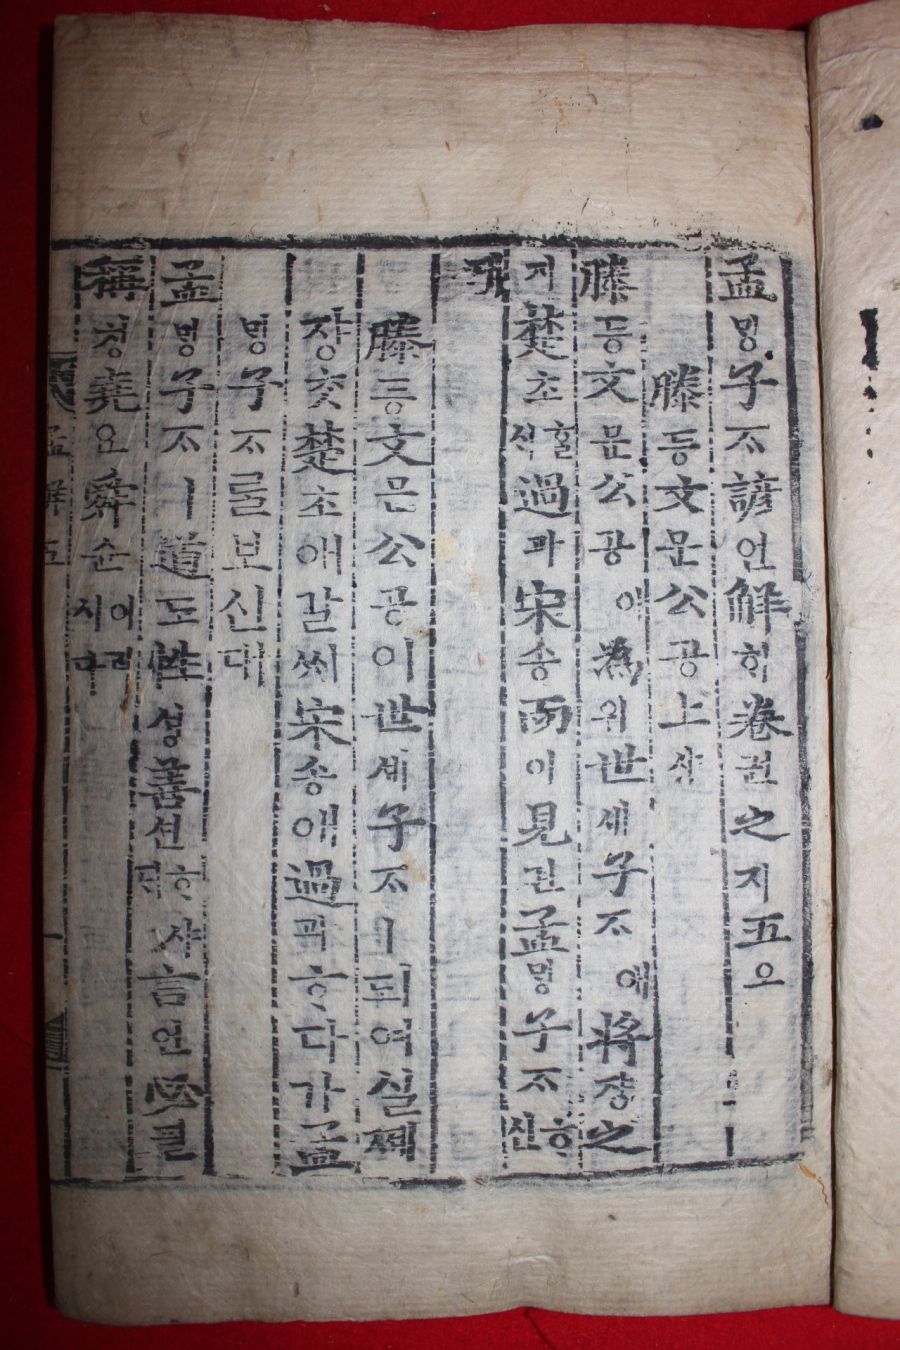 孟ᄆᆡᆼ子ᄌᆞ諺언解ᄒᆡ卷권之지五오
滕등文문公공上샹
滕등文문公공이為위世세子ᄌᆞ애將쟝之
지楚초ᄒᆞᆯᄉᆡ過과宋송而이見견孟ᄆᆡᆼ子ᄌᆞᄒᆞ신
滕등文문公공이世세子ᄌᆞㅣ되여실제
쟝ᄎᆞᆺ楚초애갈ᄊᆡ宋송애過과ᄒᆞ다가孟
ᄆᆡᆼ子ᄌᆞᄅᆞᆯ보신대
孟ᄆᆡᆼ子ᄌᆞㅣ道도性셩善션ᄒᆞ샤ᄃᆡ言언必필
稱칭堯요舜슌이러시다
孟解五
一